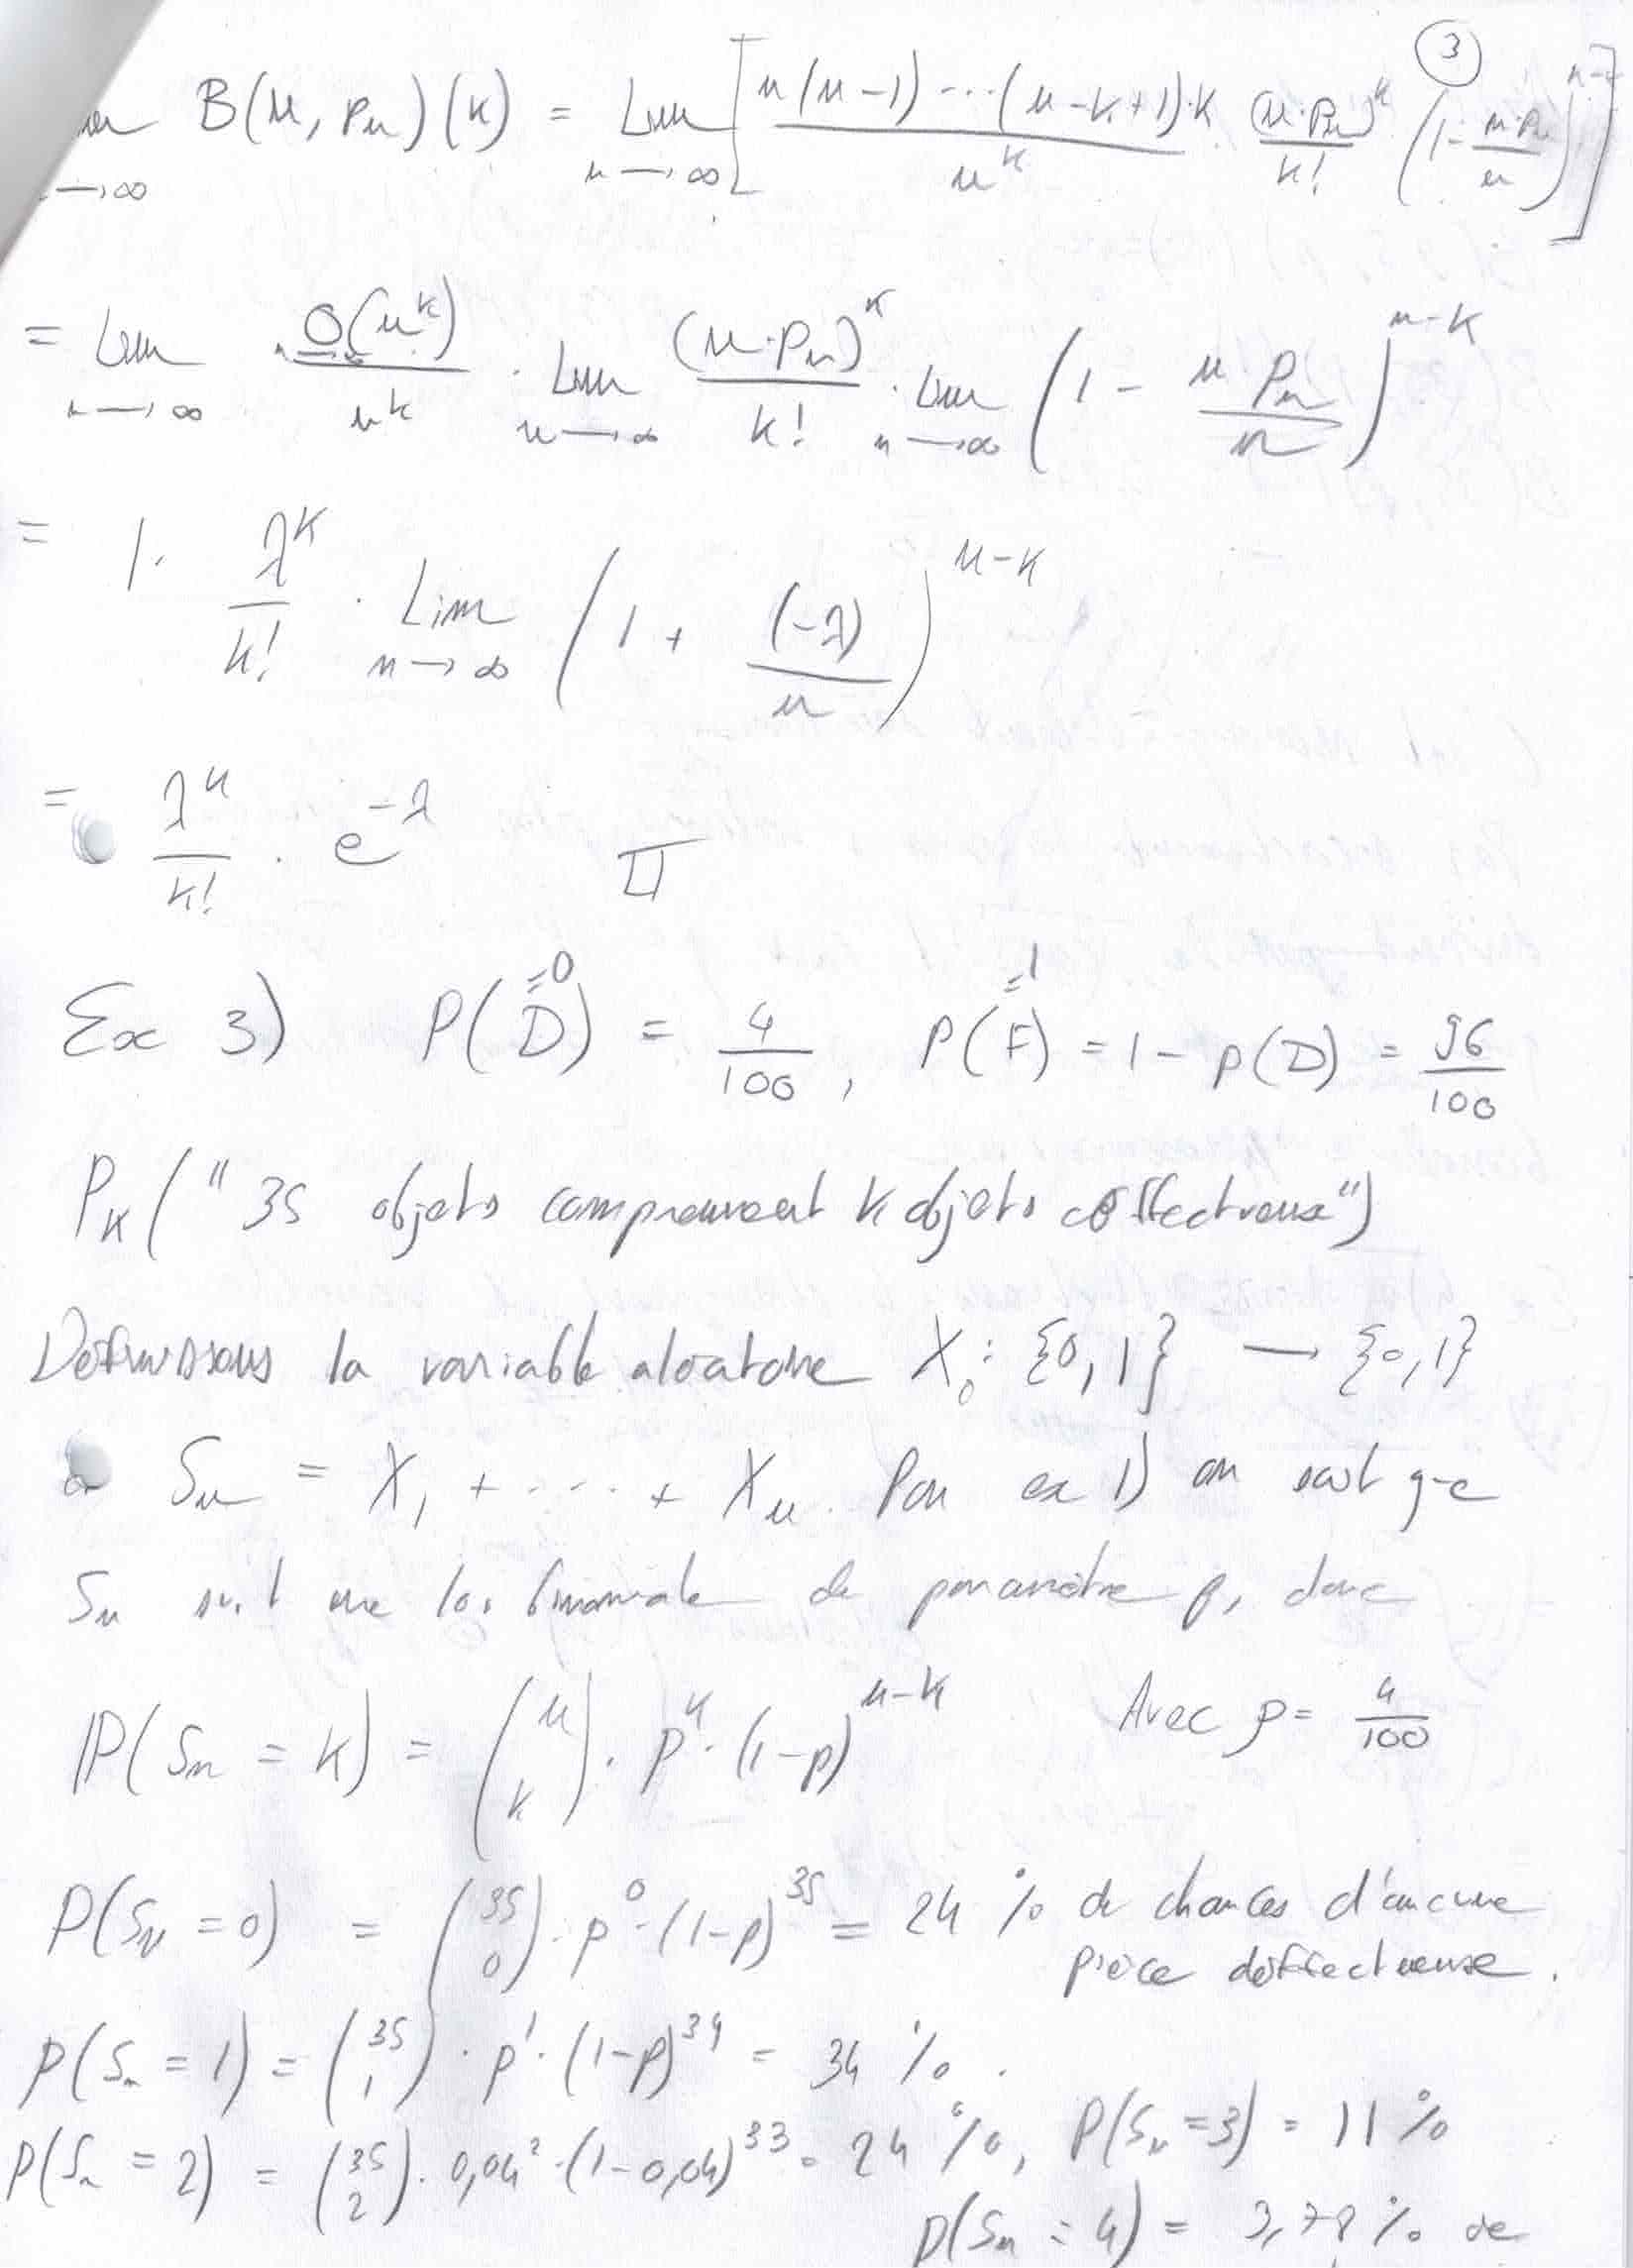 3
B(n, pn)(k) = Lim n→∞ [ n(n-1)···(n-k+1)·k / n^k · (n·pn)^k / k! · (1 - n·pn / n)^n- ]
→∞
= Lim n→∞ O(n^k) / n^k · Lim n→∞ (n·pn)^k / k! · Lim n→∞ (1 - n pn / n)^n-k
= 1· λ^k / k! · Lim n→∞ (1 + (-λ) / n)^n-k
= λ^k / k! · e^-λ
Ex 3) P(D=0) = 4/100, P(F=1) = 1 - p(D) = 96/100
Pk(" 35 objets comprennent k objets deffectueux")
Definissons la variable aleatoire X: {0,1} → {0,1}
Sn = X1 + ···· + Xn. Par ex 1) on sait que
Sn suit une loi binomiale de paramètre p, donc
P(Sn = k) = (n k) · p^k · (1-p)^n-k Avec p = 4/100
P(SN = 0) = (35 0) · p^0 · (1-p)^35 = 24 % de chances d'aucune
pièce déffectueuse.
p(Sn = 1) = (35 1) · p^1 · (1-p)^34 = 34 %.
p(Sn = 2) = (35 2) · 0,04^2 · (1-0,04)^33 = 24 %, P(Sn = 3) = 11 %
p(Sn = 4) = 3,78 % de